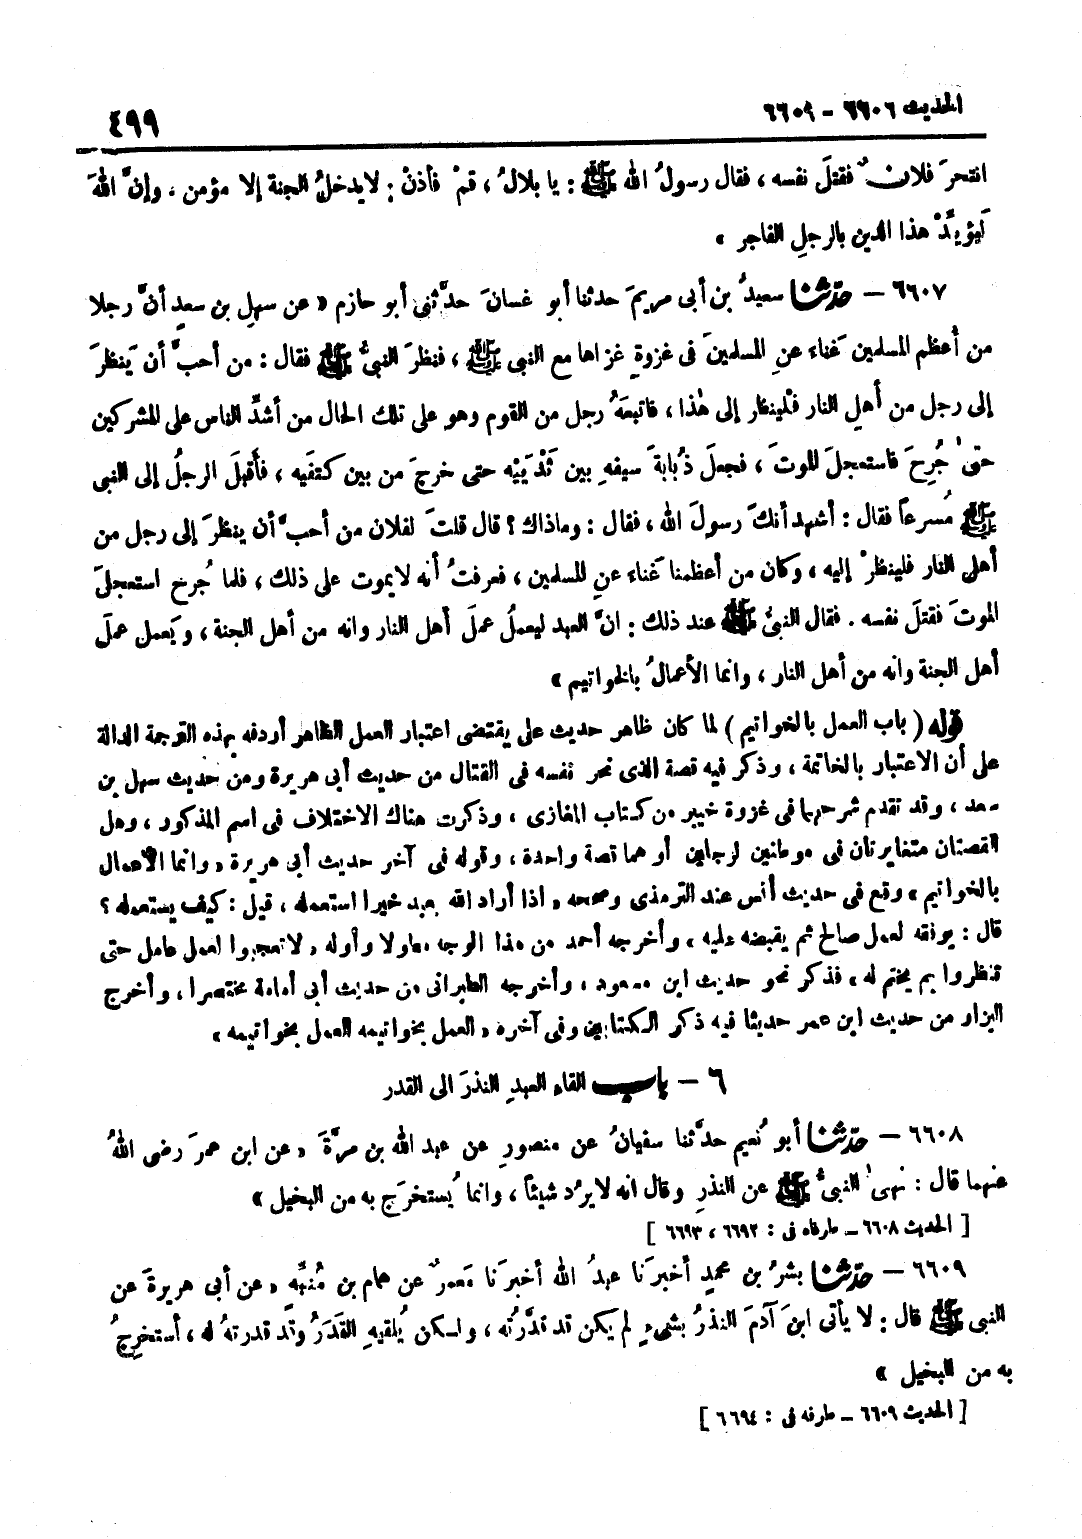 الحديث ٦٦٠٦ - ٦٦٠٩
٤٩٩
انتحرَ فلانٌ فقتلَ نفسه ، فقال رسولُ الله ﷺ : يا بلالُ ، قمْ فأذنْ : لايدخلُ الجنة إلا مؤمن . وإنَّ اللهَ
لَيؤيِّدْ هذا الدين بالرجلِ الفاجر »
٦٦٠٧ – حدّثنا سعيدُ بن أبى مريمَ حدثنا أبو غسانَ حدَّثنى أبو حازم « عن سهلِ بن سعدٍ أنَّ رجلا
من أعظم المسلمين غَناء عنِ المسلمينَ فى غزوةٍ غزاها مع النبى ﷺ ، فنظرَ النبىُّ ﷺ فقال : من أحبَّ أن يَنظرَ
إلى رجل من أهلِ النار فلْينظر إلى هٰذا ، فاتبعَهُ رجل من القوم وهو على تلك الحال من أشدِّ الناس على المشركين
حتىٰ جُرِحَ فاستعجلَ الموتَ ، فجعلَ ذُبابةَ سيفهِ بين ثَدْيَيْه حتى خرجَ من بين كتفَيه ، فأقبلَ الرجلُ إلى النبى
ﷺ مُسرعاً فقال : أشهد أنكَ رسولَ الله ، فقال : وماذاك ؟ قال قلتَ لفلان من أحبَّ أن ينظرَ إلى رجل من
أهلِ النار فلينظرْ إليه ، وكان من أعظمنا غَناء عنِ المسلمين ، فعرفتُ أنه لايموت على ذلك ، فلما جُرح استعجلَ
الموتَ فقتلَ نفسه . فقال النبىُّ ﷺ عند ذلك : انَّ العبد ليعملُ عملَ أهل النار وانه من أهل الجنة ، ويَعمل عملَ
أهل الجنة وانه من أهل النار ، وانما الأعمالُ بالخواتيم »
قوله ( باب العمل بالخواتيم ) لما كان ظاهر حديث على يقتضى اعتبار العمل الظاهر أردفه بهذه الترجمة الدالة
على أن الاعتبار بالخاتمة ، وذكر فيه قصة الذى نحر نفسه فى القتال من حديث أبى هريرة ومن حديث سهل بن
سعد ، وقد تقدم شرحهما فى غزوة خيبر من كتاب المغازى ، وذكرت هناك الاختلاف فى اسم المذكور ، وهل
القصتان متغايرتان فى موطنين لرجلين أو هما قصة واحدة ، وقوله فى آخر حديث أبى هريرة « وانما الأعمال
بالخواتيم » وقع فى حديث أنس عند الترمذى وصححه « اذا أراد الله بعبد خيرا استعمله ، قيل : كيف يستعمله ؟
قال : يوفقه لعمل صالح ثم يقبضه عليه ، وأخرجه أحمد من هذا الوجه مطولا وأوله « لاتعجبوا لعمل عامل حتى
تنظروا بم يختم له ، فذكر نحو حديث ابن مسعود ، وأخرجه الطبرانى من حديث أبى أمامة مختصرا ، وأخرج
البزار من حديث ابن عمر حديثا فيه ذكر الكتابين وفى آخره « العمل بخواتيمه العمل بخواتيمه »
٦ – باب القاء العبدِ النذرَ الى القدر
٦٦٠٨ – حدّثنا أبو نُعيم حدَّثنا سفيانُ عن منصورٍ عن عبد الله بن مرَّةَ « عن ابن عمرَ رضى اللهُ
عنهما قال : نهىٰ النبىُّ ﷺ عن النذرِ وقال انه لايرُد شيئاً ، وانما يُستخرَج به من البخيل »
[ الحديث ٦٦٠٨ – طرفاه فى : ٦٦٩٢ ، ٦٦٩٣ ]
٦٦٠٩ – حدّثنا بشرُ بن محمدٍ أخبرَنا عبدُ الله أخبرَنا مَعمرٌ عن همام بن مُنبِّه « عن أبى هريرةَ عن
النبى ﷺ قال : لا يأتى ابنَ آدمَ النذرُ بشىءٍ لم يكن قد قدَّرتُه ، ولكن يُلقيهِ القدَرُ وقد قدرتهُ له ، أستخرِجُ
به من البخيل »
[ الحديث ٦٦٠٩ – طرفه فى : ٦٦٩٤ ]